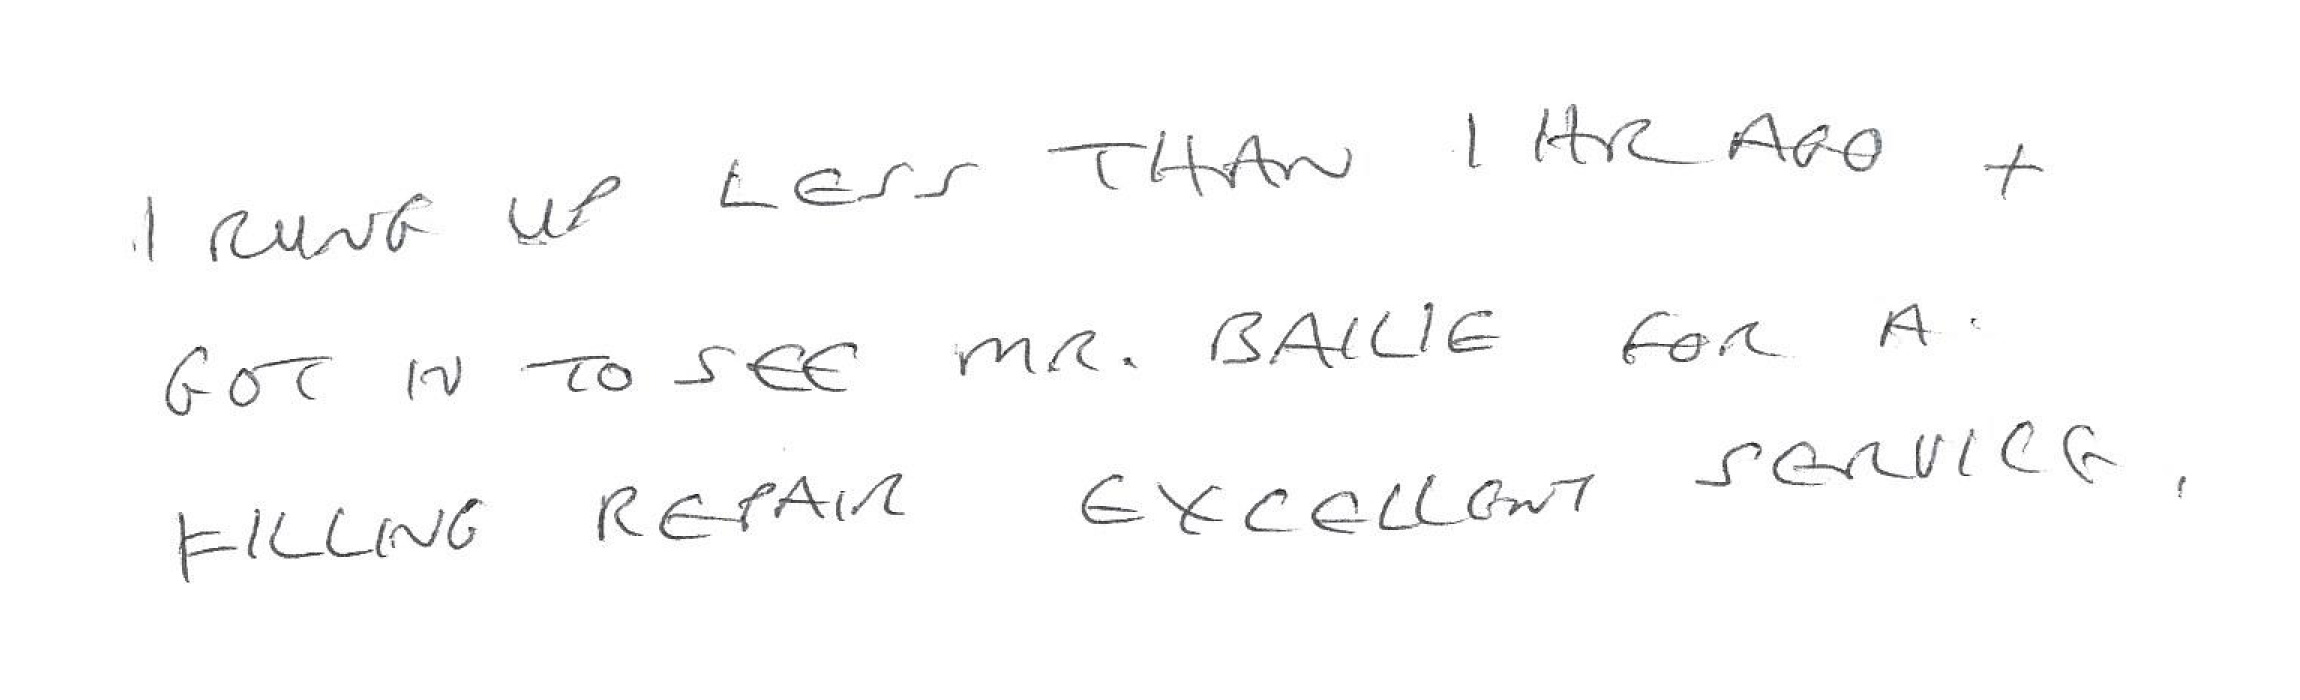 I RUNG UP LESS THAN 1 HR AGO +
GOT IN TO SEE MR. BAILIE FOR A.
FILLING REPAIR EXCELLENT SERVICE.